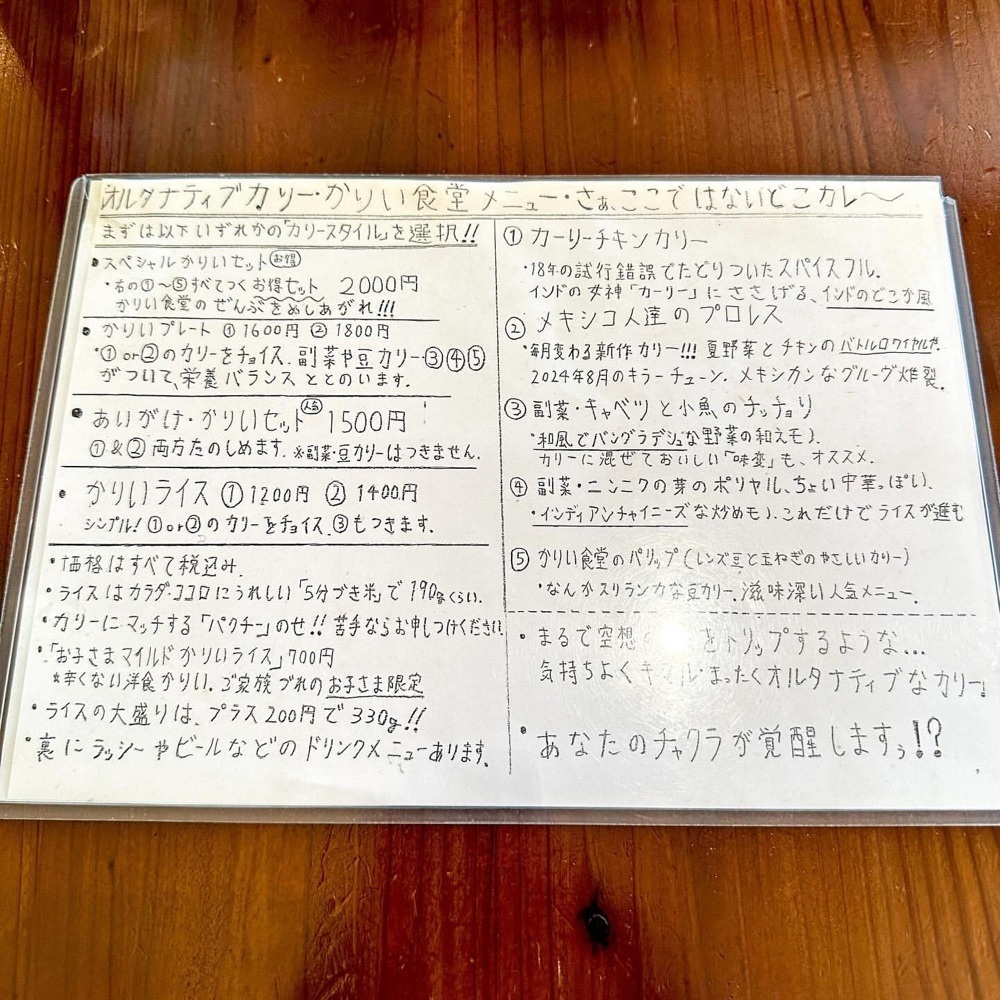 オルタナティブカリー・かりい食堂メニュー・さぁ、ここではないどこカレ〜
まずは以下いずれかの「カリースタイル」を選択!!
・スペシャルかりいセット お得
・右の①〜⑤すべてつくお得セット 2000円
かりい食堂のぜんぶをめしあがれ!!!
・かりいプレート ①1600円 ②1800円
・①or②のカリーをチョイス、副菜や豆カリー③④⑤
がついて、栄養バランスととのいます。
・あいがけ・かりいセット 人気 1500円
①&②両方たのしめます。※副菜・豆カリーはつきません。
・かりいライス ①1200円 ②1400円
シンプル!①or②のカリーをチョイス、③もつきます。
・価格はすべて税込み。
・ライスはカラダ・ココロにうれしい「5分づき米」で190gくらい。
・カリーにマッチする「パクチー」のせ!!苦手ならお申しつけください
・「お子さまマイルドかりいライス」700円
※辛くない洋食かりい。ご家族づれのお子さま限定
・ライスの大盛りは、プラス200円で330g!!
・裏にラッシーやビールなどのドリンクメニューあります。
① カーリーチキンカリー
・18年の試行錯誤でたどりついたスパイスフル。
インドの女神「カーリー」にささげる、インドのどこか風
② メキシコ人達のプロレス
・毎月変わる新作カリー!!!夏野菜とチキンのバトルロワイヤルだ。
2024年8月のキラーチューン。メキシカンなグルーヴ炸裂。
③ 副菜・キャベツと小魚のチッチョリ
・和風でバングラデシュな野菜の和えモノ。
カリーに混ぜておいしい「味変」も、オススメ。
④ 副菜・ニンニクの芽のポリヤル、ちょい中華っぽい。
・インディアンチャイニーズな炒めモノ。これだけでライスが進む
⑤ かりい食堂のパリップ(レンズ豆と玉ねぎのやさしいカリー)
・なんかスリランカな豆カリー。滋味深い人気メニュー。
・まるで空想の をトリップするような...
気持ちよくキマル・まったくオルタナティブなカリー!
・あなたのチャクラが覚醒しますぅ!?